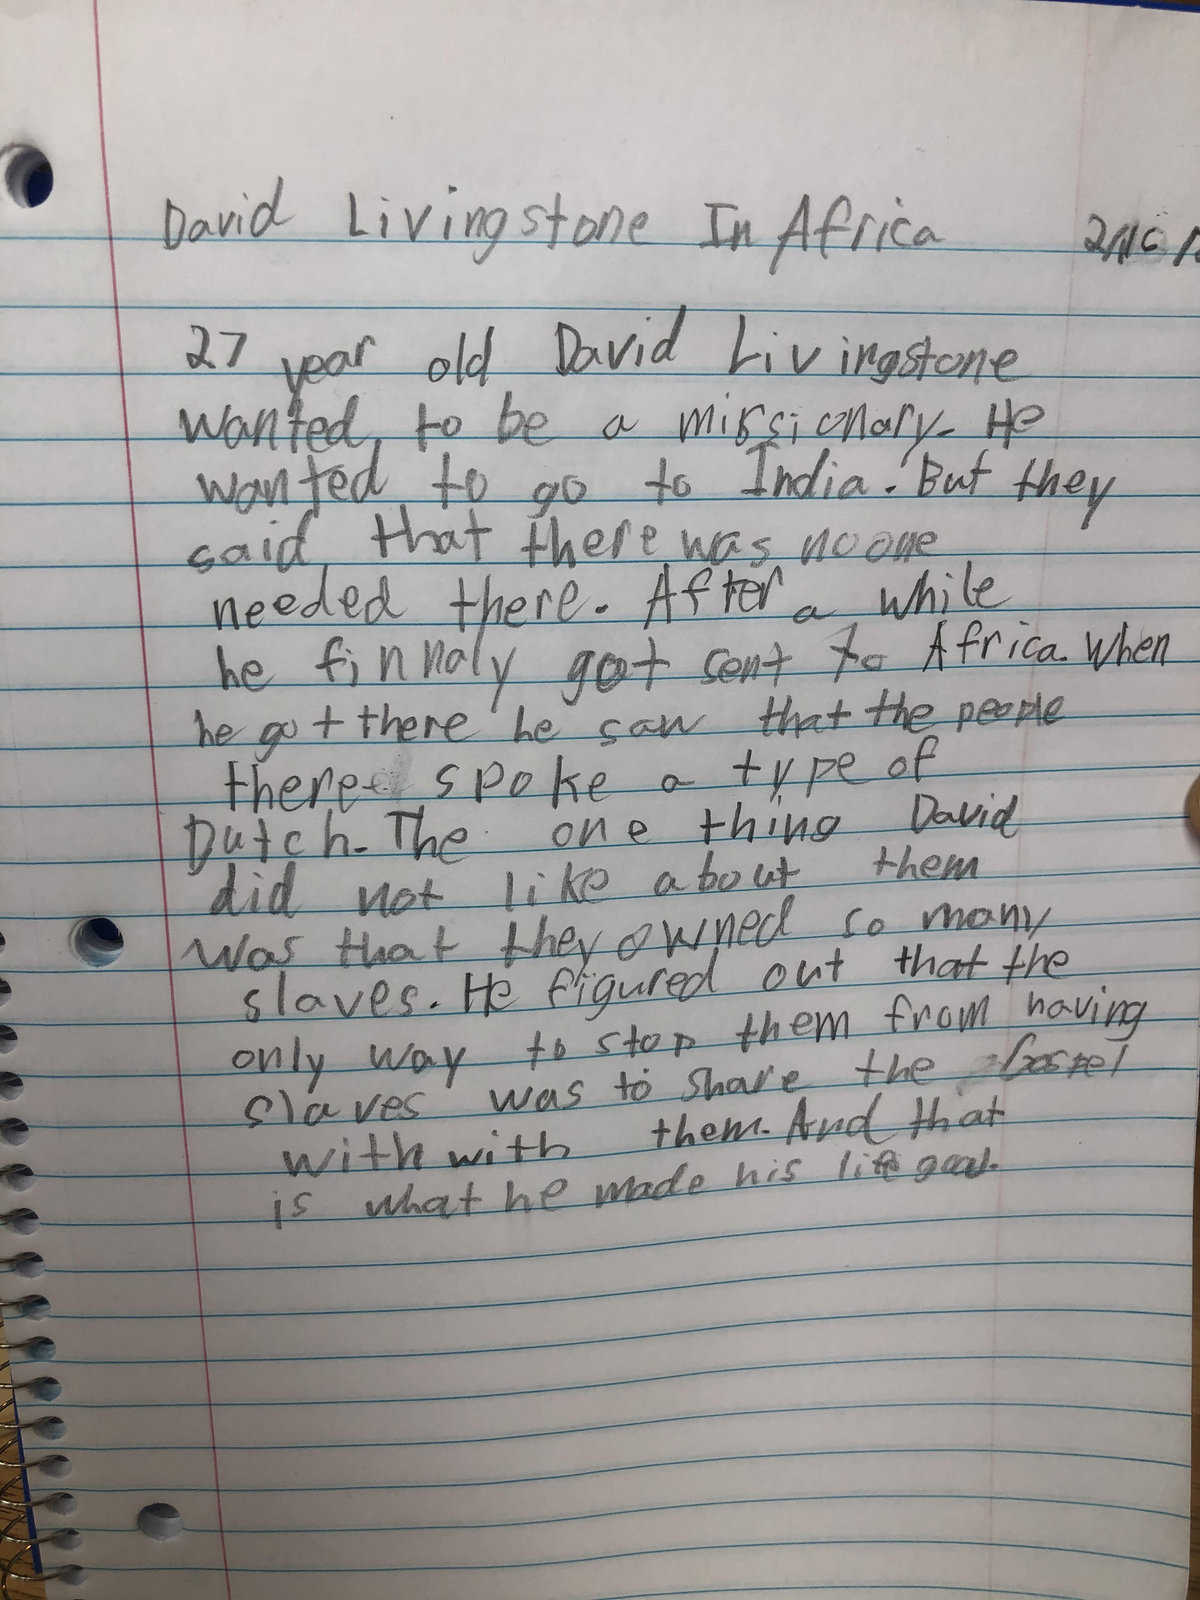 David Livingstone In Africa
27 year old David Livingstone
wanted to be a missionary. He
wanted to go to India. But they
said that there was no one
needed there. After a while
he finnaly got sent to Africa. When
he got there he saw that the people
there spoke a type of
Dutch. The one thing David
did not like about them
was that they owned so many
slaves. He figured out that the
only way to stop them from having
slaves was to share the Gospel
with with them. And that
is what he made his life goal.